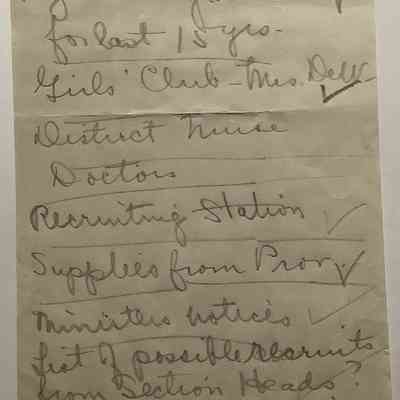 for last 15 yrs.
Girls' Club - Mrs. DeW
District Nurse
Doctors
Recruiting Station
Supplies from Prov.
Ministers notices
List of possible recruits
from Section Heads?